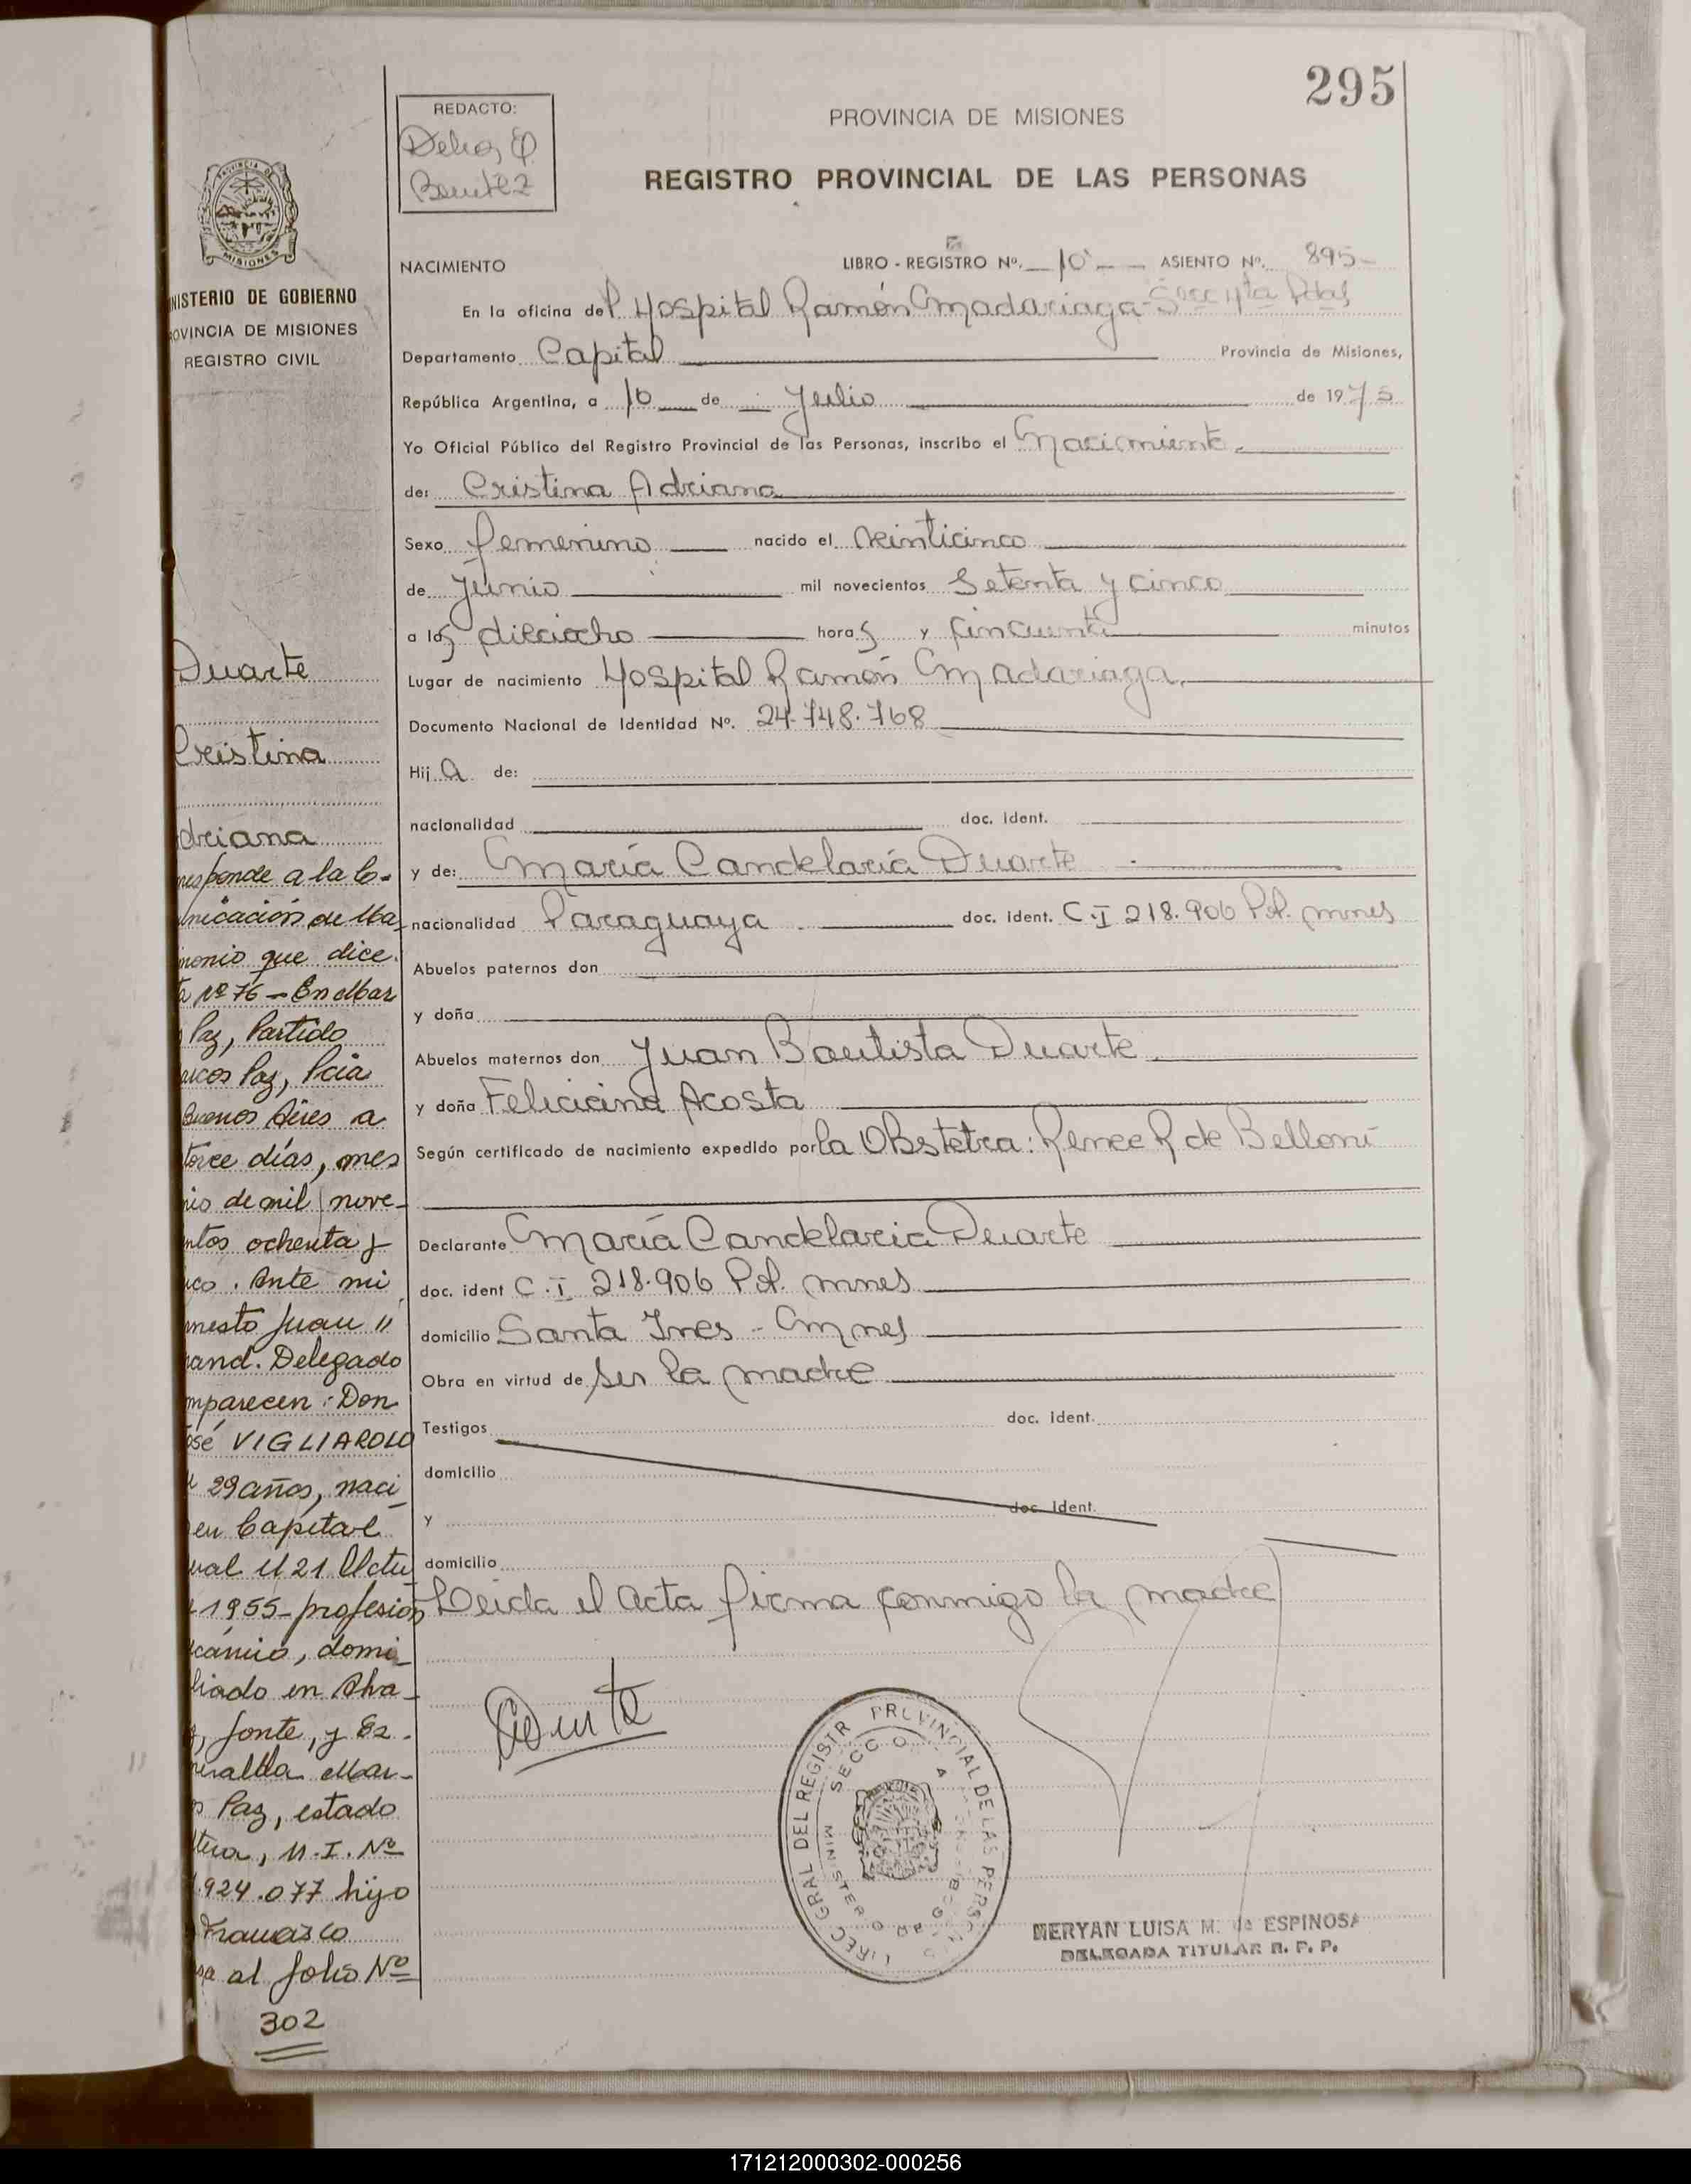 295
REDACTO:
Benitez
PROVINCIA DE MISIONES
REGISTRO PROVINCIAL DE LAS PERSONAS
NACIMIENTO
LIBRO - REGISTRO Nº. 10 ASIENTO Nº. 895
En la oficina del Hospital Ramón Madariaga - Secc 4ta Pdas
Departamento Capital Provincia de Misiones,
República Argentina, a 10 de Julio de 1975
Yo Oficial Público del Registro Provincial de las Personas, inscribo el Nacimiento
de: Cristina Adriana
Sexo femenino nacido el Veinticinco
de Junio mil novecientos Setenta y cinco
a las dieciocho horas y cincuenta minutos
Lugar de nacimiento Hospital Ramón Madariaga
Documento Nacional de Identidad Nº. 24.748.768
Hija de:
nacionalidad doc. ident.
y de: María Candelaria Duarte
nacionalidad Paraguaya doc. ident. C.I 218.906 Pol. mnes
Abuelos paternos don
y doña
Abuelos maternos don Juan Bautista Duarte
y doña Feliciana Acosta
Según certificado de nacimiento expedido por la Obstetra: Renee R de Belloni
Declarante María Candelaria Duarte
doc. ident C.I 218.906 Pol. mnes
domicilio Santa Ines - Mnes
Obra en virtud de ser la madre
Testigos doc. ident.
domicilio
y doc. ident.
domicilio
Leida el acta firma conmigo la madre
Duarte
MERYAN LUISA M. de ESPINOSA
DELEGADA TITULAR R. P. P.
PROVINCIA DE
MISIONES
NISTERIO DE GOBIERNO
OVINCIA DE MISIONES
REGISTRO CIVIL
Duarte
Cristina
driana
responde a la Co-
unicación de Ma-
monio que dice.
a Nº 76 - En Mar
Paz, Partido
arcos Paz, Pcia
Buenos Aires a
torce días, mes
nio de mil nove-
ntos ochenta y
nco. Ante mi
rnesto Juan "
rand. Delegado
mparecen: Don
osé VIGLIAROLO
29 años, naci-
en Capital
1955 - profesión
cánico, domi-
liado en Alva-
fonte, y Ez.
Paz, estado
ltero, M.I. Nº
.924.077 hijo
Francisco
sa al folio Nº
302
171212000302-000256